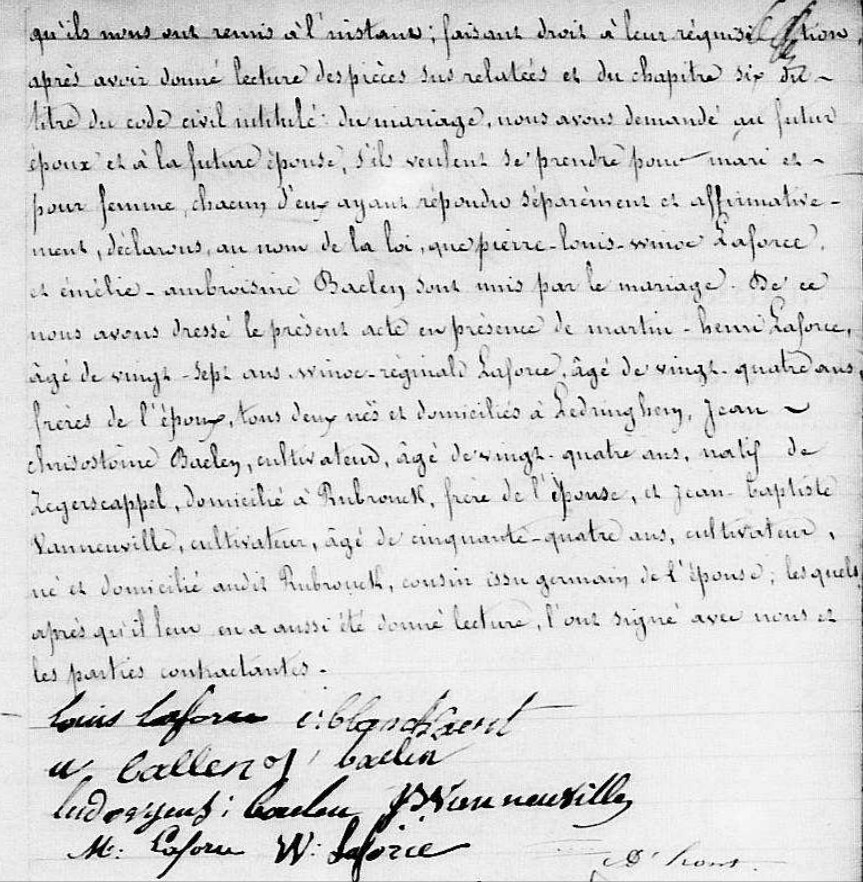 qu'ils nous ont remis à l'instant ; faisant droit à leur réquisition,
après avoir donné lecture des pièces sus relatées et du chapitre six du -
titre du code civil intitulé : du mariage, nous avons demandé au futur
époux et à la future épouse, s'ils veulent se prendre pour mari et -
pour femme, chacun d'eux ayant répondu séparément et affirmative -
ment, déclarons, au nom de la loi, que pierre-louis-winoc Laforce,
et émélie - ambroisine Baelen sont unis par le mariage. De ce
nous avons dressé le présent acte en présence de martin - henri Laforce,
âgé de vingt - sept ans winoc-réginald Laforce, âgé de vingt-quatre ans,
frères de l'époux, tous deux nés et domiciliés à Ledringhem, Jean ~
chrisostome Baelen, cultivateur, âgé de vingt-quatre ans, natif de
Zegerscappel, domicilié à Rubrouck, frère de l'épouse, et Jean-baptiste
Vanneuville, cultivateur, âgé de cinquante-quatre ans, cultivateur,
né et domicilié audit Rubrouck, cousin issu germain de l'épouse ; lesquels
après qu'il leur en a aussi été donné lecture, l'ont signé avec nous et
les parties contractantes.
louis laforce c: blanckaert
baelen
baelen JBVanneuville
M: Laforce W: Laforce